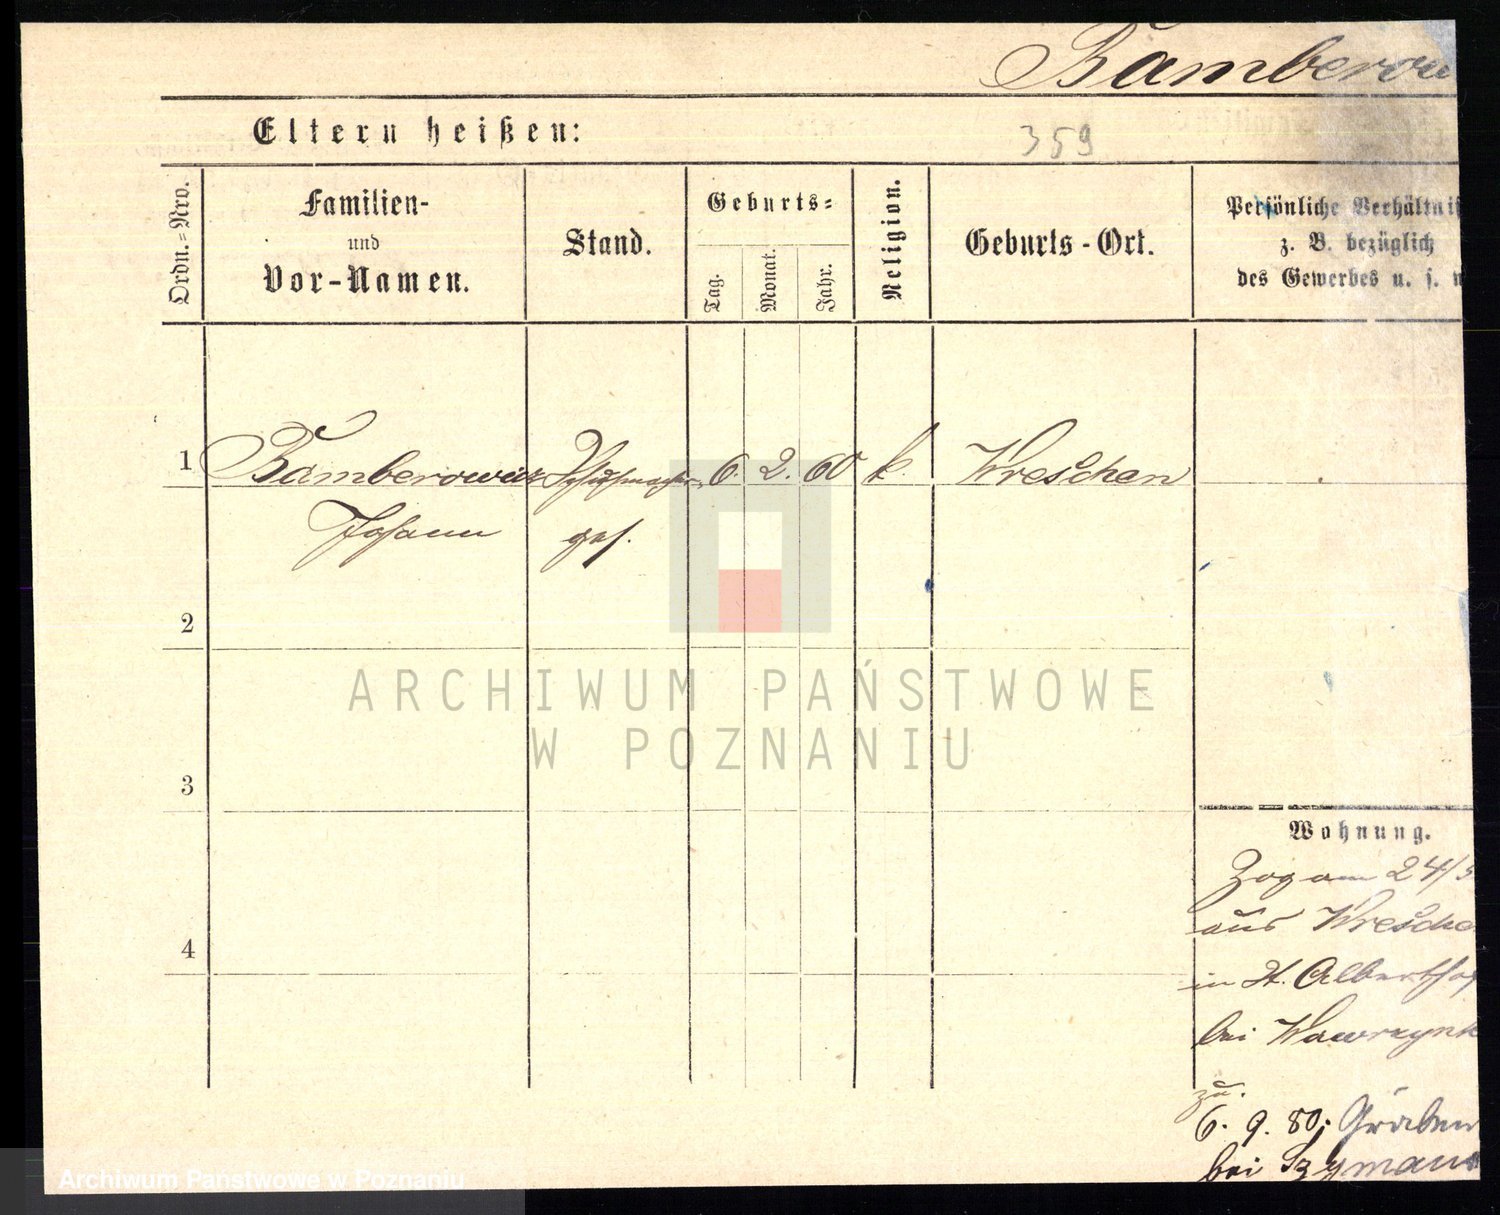 Bamberow
Eltern heißen:
359
Ordn.=Nro.
Familien-
und
Vor-Namen.
Stand.
Geburts=
Tag.
Monat.
Jahr.
Religion.
Geburts-Ort.
Persönliche Verhältnis
z. B. bezüglich
des Gewerbes u. s. w
1
Bamberowicz
Schuhmacher
6.
2.
60
k.
Wreschen
Johann
ges.
2
3
4
Wohnung.
Zog am 24/5
aus Wresche
in St. Alberth
bei Wawrzynk
zu.
6. 9. 80; Graben
bei Szymans
ARCHIWUM PAŃSTWOWE
W POZNANIU
Archiwum Państwowe w Poznaniu